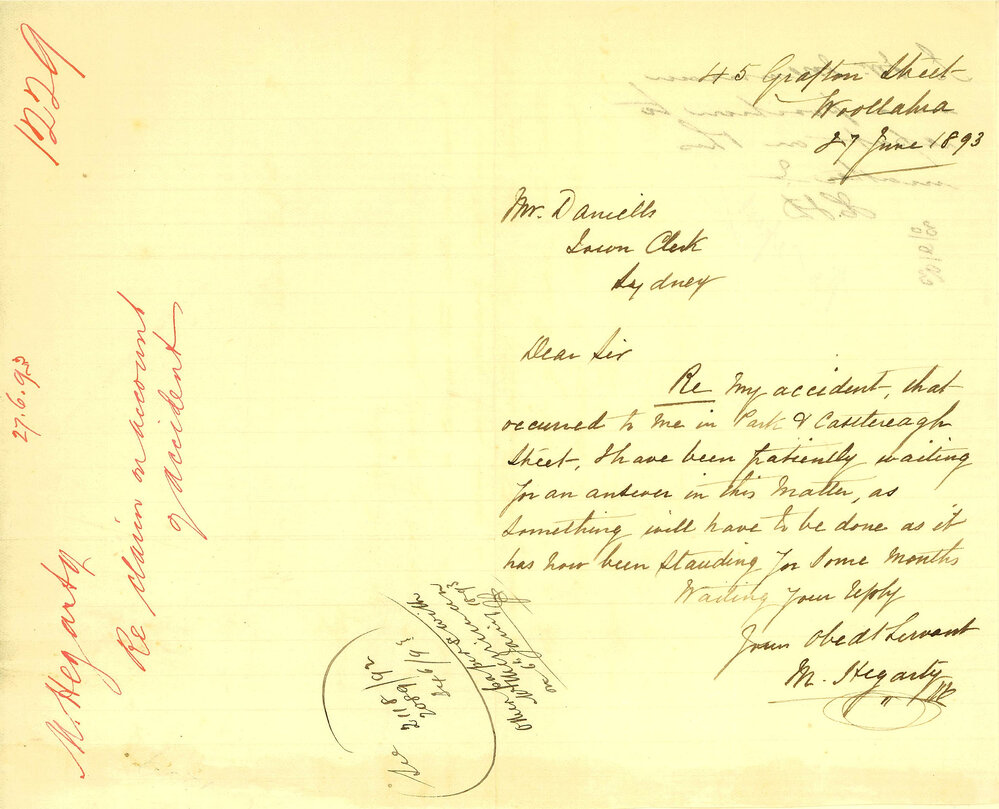 45 Grafton Street
Woollahra
27 June 1893
Mr. Daniells
Town Clerk
Sydney
Dear Sir
Re My accident, that
occurred to Me in Park & Casttereagh
Street, I have been patiently waiting
for an answer in this Matter, as
Something will have to be done as it
has now been Standing for Some Months
Waiting Your Reply
Your Obedt Servant
M. Hegarty
1229
27.6.93
M. Hegarty
Re claim on account
of accident
See 2118/92
2089/92
846/93
Other papers with
on 6 April 1893